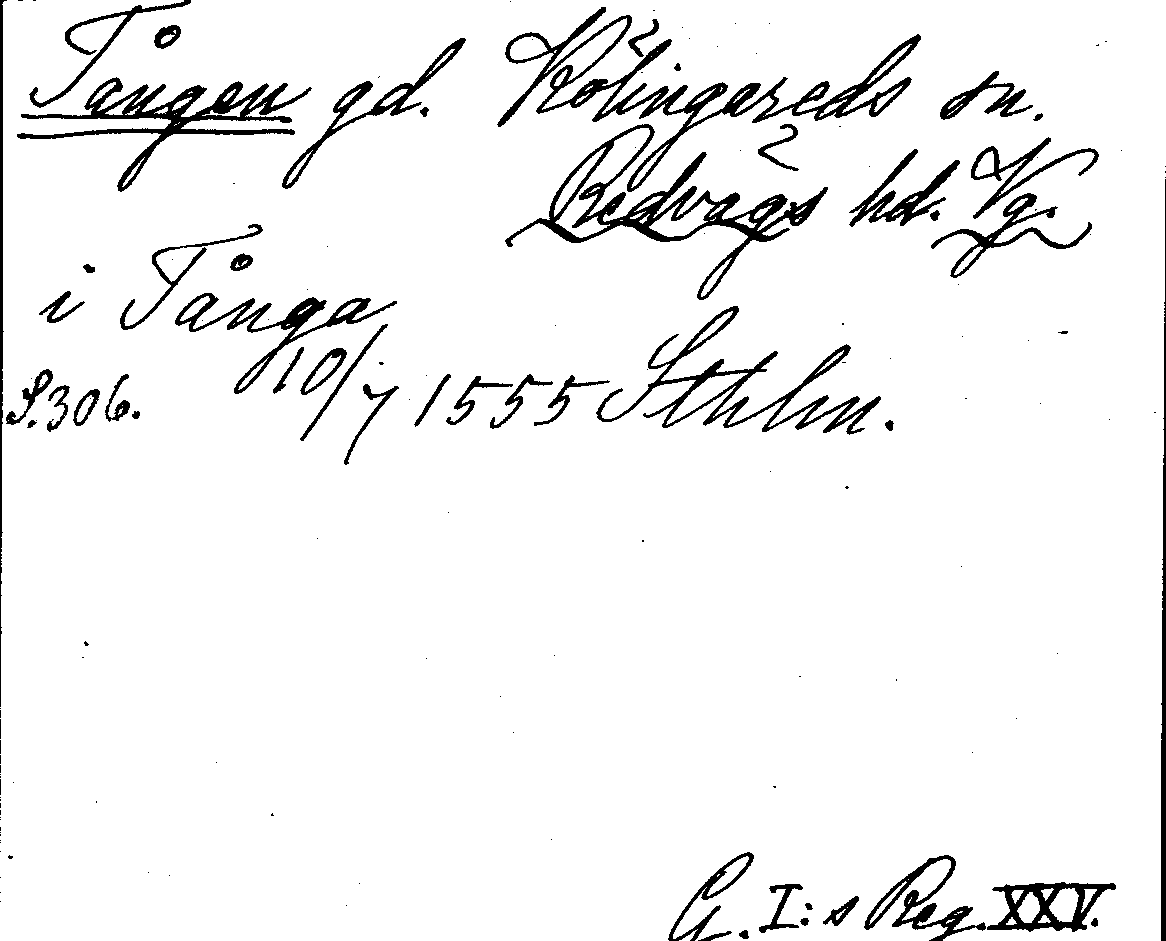 Tången gd. Kölingareds sn.
Redvägs hd. Vg.
i Tånga
S.306. 10/7 1555 Sthlm.
G. I:s Reg. XXV.